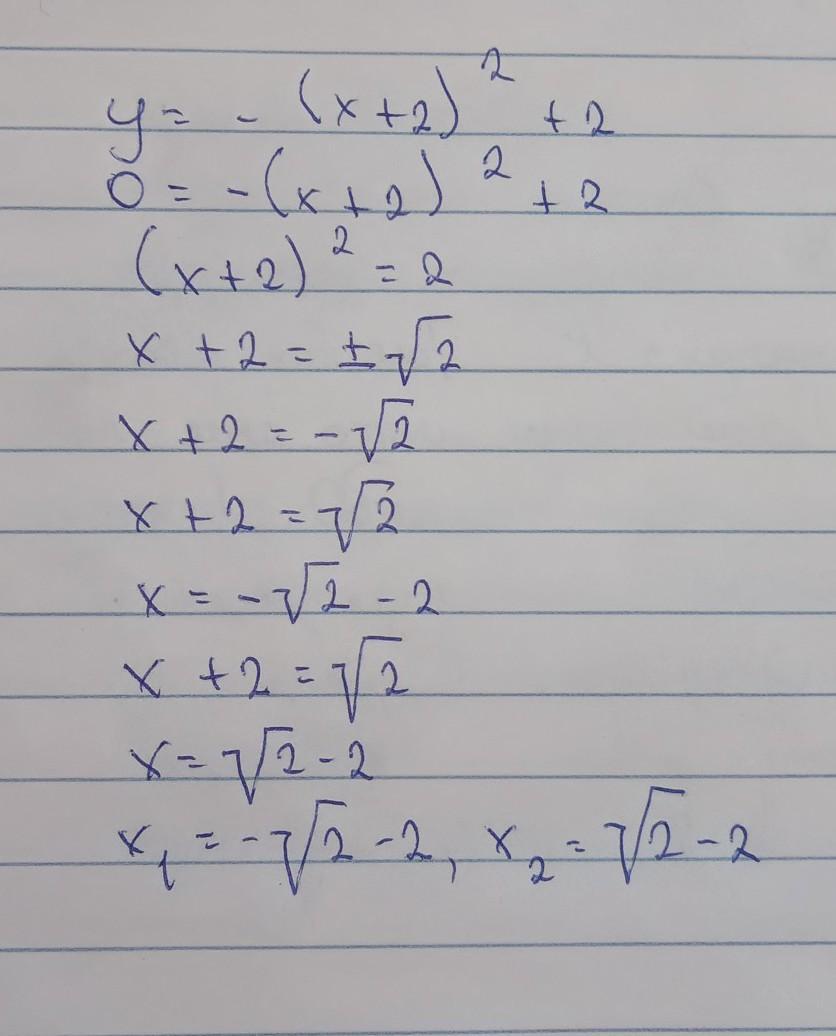 y = - (x+2)² + 2
0 = -(x+2)² + 2
(x+2)² = 2
x + 2 = ±√2
x + 2 = -√2
x + 2 = √2
x = -√2 - 2
x + 2 = √2
x = √2 - 2
x₁ = -√2 - 2, x₂ = √2 - 2